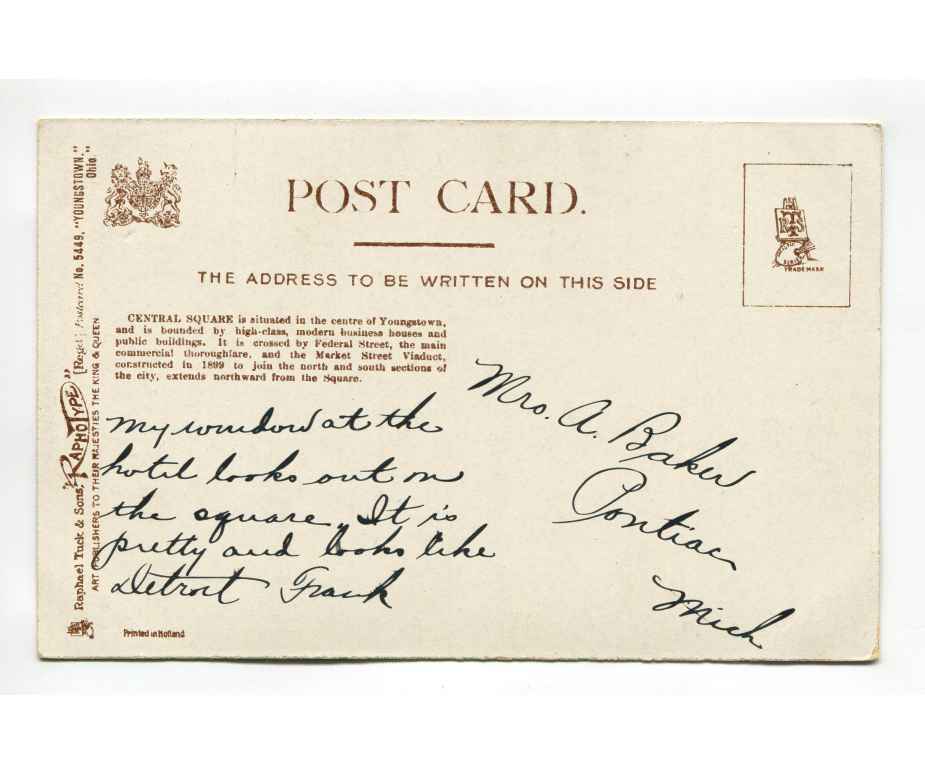 POST CARD.
THE ADDRESS TO BE WRITTEN ON THIS SIDE
TRADE MARK
CENTRAL SQUARE is situated in the centre of Youngstown,
and is bounded by high-class, modern business houses and
public buildings. It is crossed by Federal Street, the main
commercial thoroughfare, and the Market Street Viaduct,
constructed in 1899 to join the north and south sections of
the city, extends northward from the Square.
my window at the
hotel looks out on
the square. It is
pretty and looks like
Detroit Frank
Mrs. A. Baker
Pontiac
Mich
Raphael Tuck & Sons' "RAPHOTYPE" [Regd.] Postcard No. 5449. "YOUNGSTOWN."
Ohio."
ART PUBLISHERS TO THEIR MAJESTIES THE KING & QUEEN
Printed in Holland